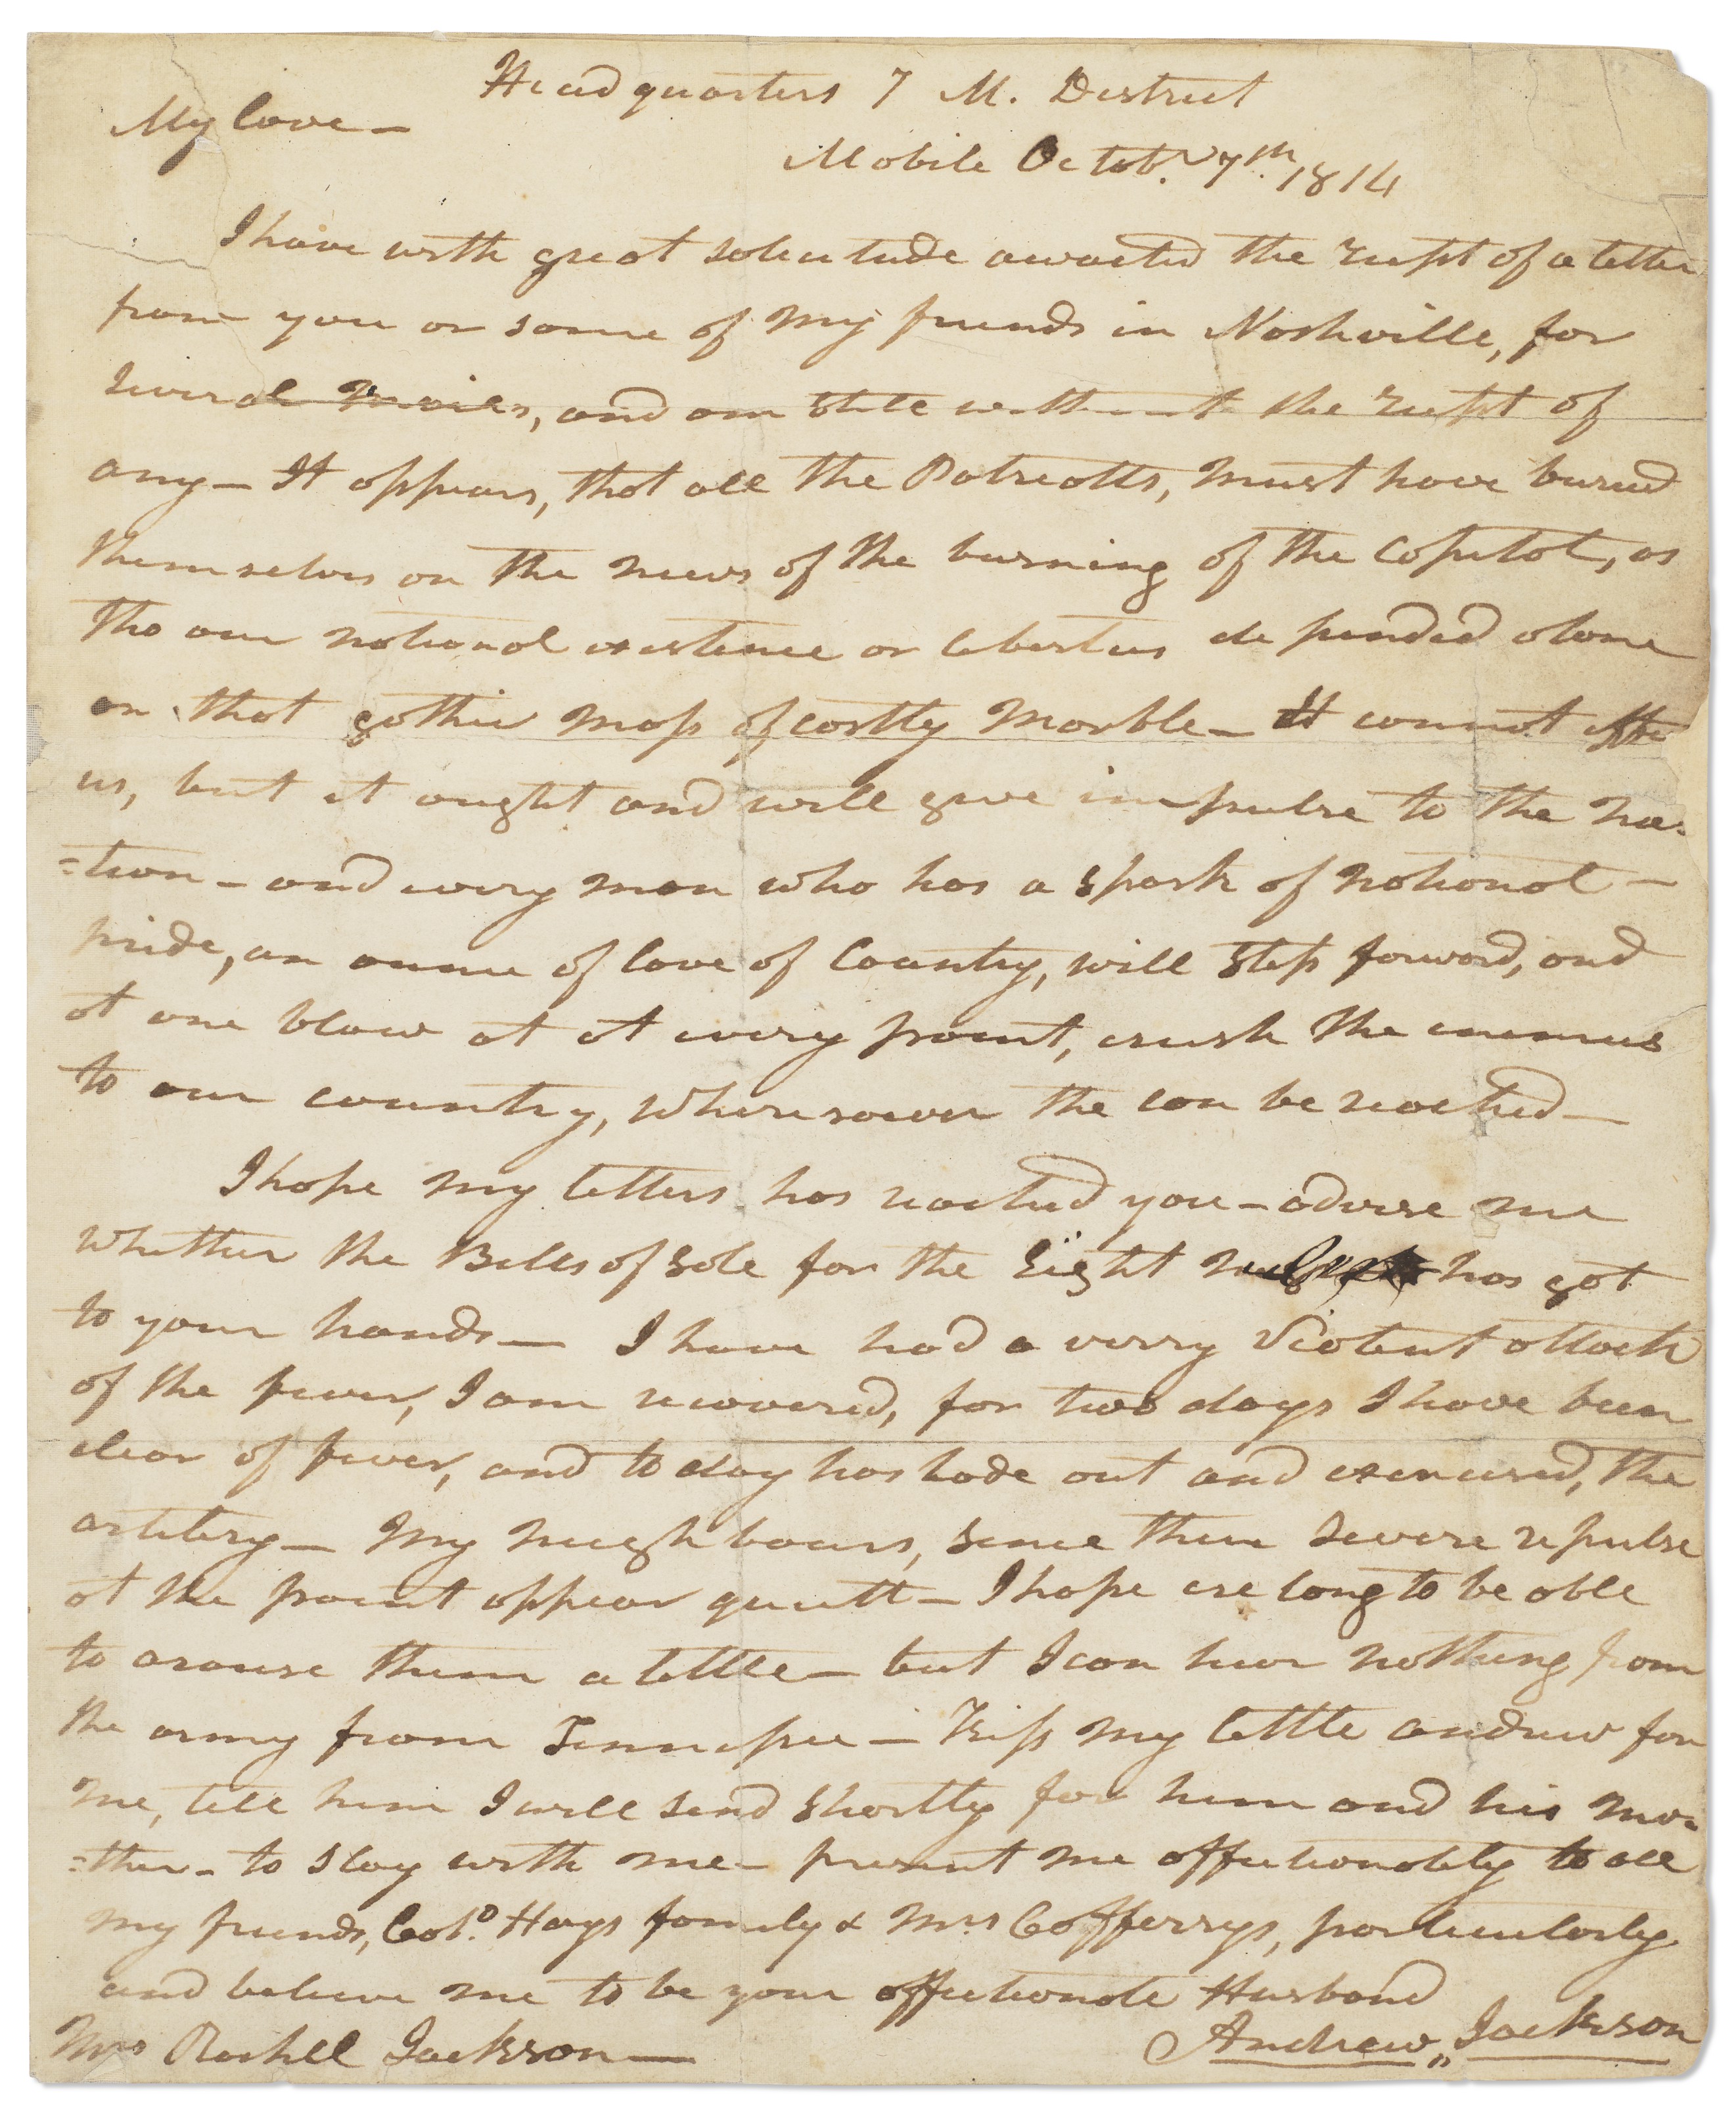 Headquarters 7 M. District
My love—
Mobile Octobr. 7th. 1814
I have with great solicitude awaited the recpt of a letter
from you or some of my friends in Nashville, for
several mails, and am still without the recpt of
any— It appears, that all the Patriotts, must have buried
themselves on the news of the burning of the Capitol, as
tho our national existence or liberties depended alone
on that gothic mass of costly Marble— It cannot effe
us, but it ought and will give impulse to the na=
=tion— and every man who has a spark of national—
pride, an ounce of love of Country, will step forward, and
at one blow at at every point, crush the enemies
to our country, wheresoever the can be reached—
I hope my letters has reached you— advise me
whether the Bills of Sale for the Eight has got
to your hands— I have had a verry Violent attack
of the fever, I am recovered, for two days I have been
clear of fever, and to day has hade out and exercised, the
artilery— My neighbours, since their severe repulse
at the point appear quiett— I hope ere long to be able
to arouse them a little— but I can hear nothing from
the army from Tennessee— Kiss my little andrew for
me, tell him I will send shortly for him and his mo=
=ther— to stay with me— present me affectionately to all
my friends, Colo. Hays family & Mrs Cafferrys, particularly
and believe me to be your affectionate Husband
Mrs Rachel Jackson—
Andrew,, Jackson